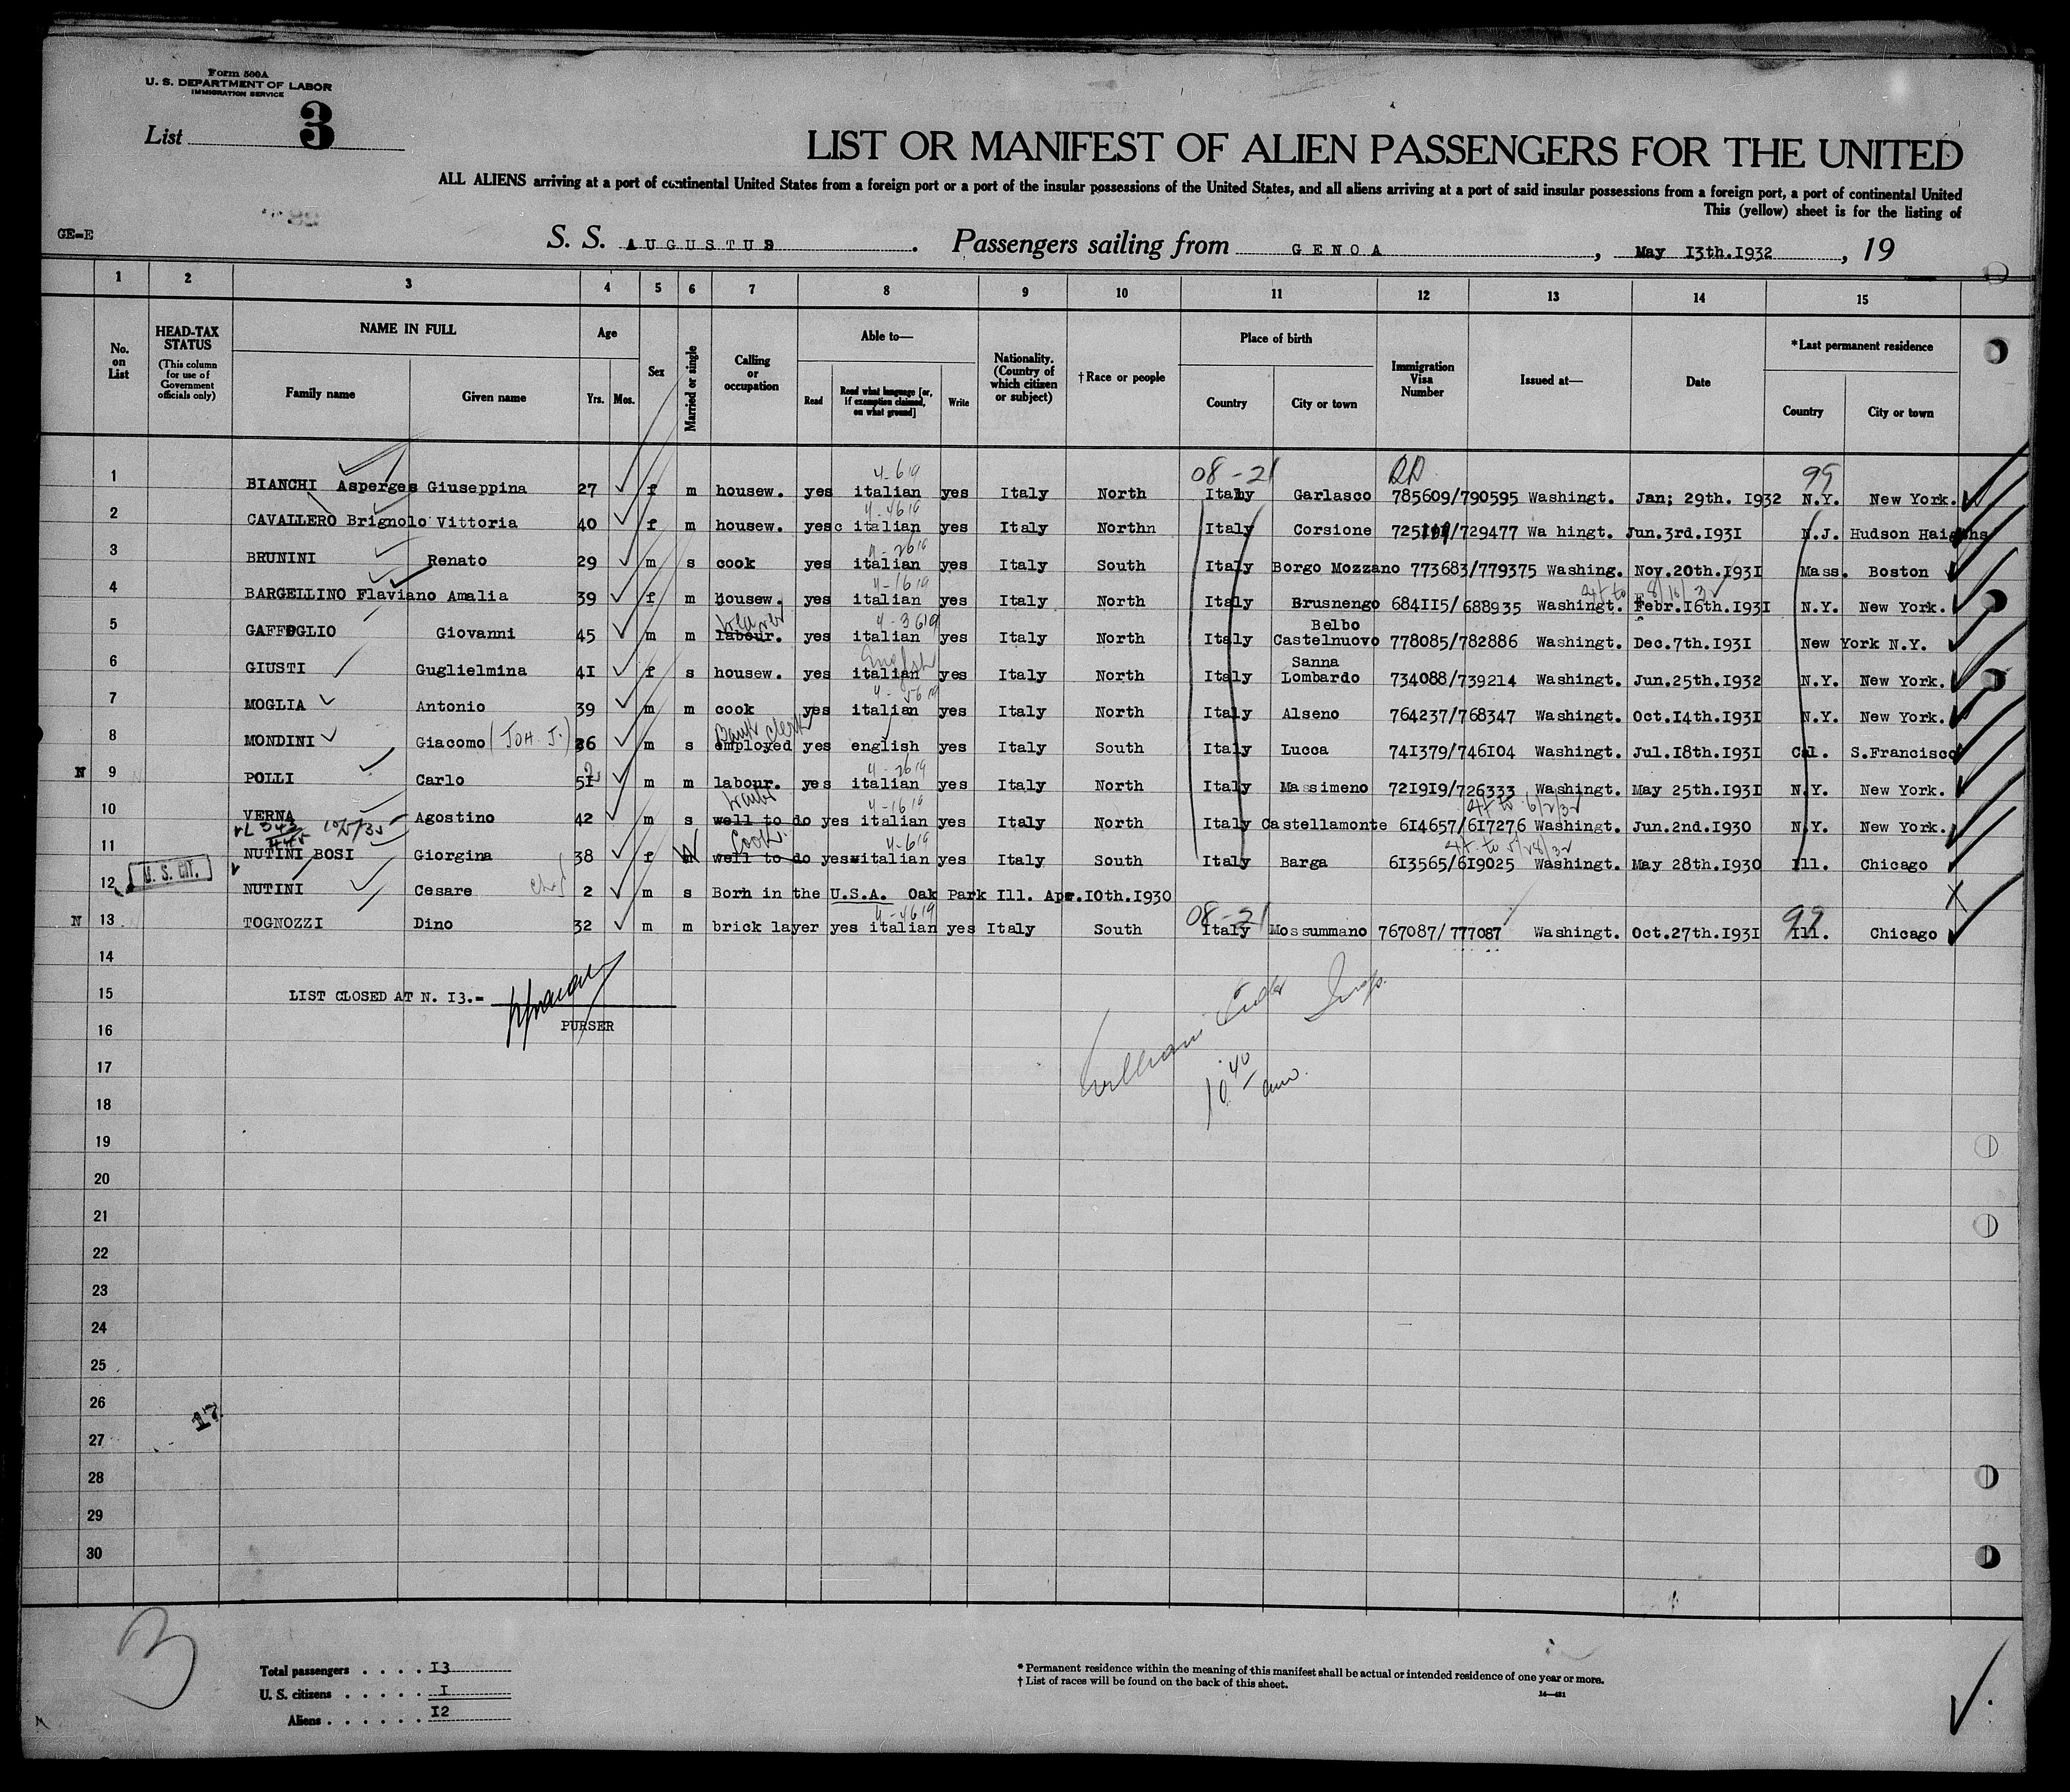 Form 500A
U. S. DEPARTMENT OF LABOR
IMMIGRATION SERVICE
List 3
LIST OR MANIFEST OF ALIEN PASSENGERS FOR THE UNITED
ALL ALIENS arriving at a port of continental United States from a foreign port or a port of the insular possessions of the United States, and all aliens arriving at a port of said insular possessions from a foreign port, a port of continental United
This (yellow) sheet is for the listing of
GE-E
S. S. AUGUSTUS. Passengers sailing from GENOA, May I3th.I932, 19
1 2 3 4 5 6 7 8 9 10 11 12 13 14 15
No. on List
HEAD-TAX STATUS (This column for use of Government officials only)
NAME IN FULL
Family name Given name
Age
Yrs. Mos.
Sex
Married or single
Calling or occupation
Able to—
Read
Read what language [or, if exemption claimed, on what ground]
Write
Nationality. (Country of which citizen or subject)
† Race or people
Place of birth
Country City or town
Immigration Visa Number
Issued at—
Date
* Last permanent residence
Country City or town
4-619 08-21 99
1 BIANCHI Asperges Giuseppina 27 f m housew. yes italian yes Italy North Italy Garlasco 785609/790595 Washingt. Jan; 29th. I932 N.Y. New York.
2 CAVALLERO Brignolo Vittoria 40 f m housew. yesc italian yes Italy Northn Italy Corsione /729477 Wa hingt. Jun.3rd.I93I N.J. Hudson
3 BRUNINI Renato 29 m s cook yes italian yes Italy South Italy Borgo Mozzano 773683/779375 Washing. Nov.20th.I93I Mass. Boston
4-1619 8/16/32
4 BARGELLINO Flaviano Amalia 39 f m housew. yes italian yes Italy North Italy Brusnengo 684II5/688935 Washingt. Febr.I6th.I93I N.Y. New York.
weaver 4-3619 Belbo
5 GAFFOGLIO Giovanni 45 m m labour. yes italian yes Italy North Italy Castelnuovo 778085/782886 Washingt. Dec.7th.I93I New York N.Y.
English Sanna
6 GIUSTI Guglielmina 4I f s housew. yes italian yes Italy North Italy Lombardo 734088/739214 Washingt. Jun.25th.I932 N.Y. New York.
7 MOGLIA Antonio 39 m m cook yes italian yes Italy North Italy Alseno 764237/768347 Washingt. Oct.I4th.I93I N.Y. New York.
Bank clerk
8 MONDINI Giacomo (JOH. J.) 26 m s employed yes english yes Italy South Italy Lucca 74I379/746I04 Washingt. Jul.I8th.I93I Cal. S.Francisco
4-2619
N 9 POLLI Carlo 5I m m labour. yes italian yes Italy North Italy Massimeno 72I9I9/726333 Washingt. May 25th.I93I N.Y. New York.
4-1619 6/2/32
10 VERNA Agostino 42 m s well to do yes italian yes Italy North Italy Castellamonte 6I4657/6I7276 Washingt. Jun.2nd.I930 N.Y. New York.
Cook. 4-619
11 NUTINI BOSI Giorgina 38 f well to do yes italian yes Italy South Italy Barga 6I3565/6I9025 Washingt. May 28th.I930 Ill. Chicago
12 U. S. CIT. NUTINI Cesare 2 m s Born in the U.S.A. Oak Park Ill. Apr.I0th.I930
4-4619 08-21 99
N 13 TOGNOZZI Dino 32 m m brick layer yes italian yes Italy South Italy Mossummano 767087/777087 Washingt. Oct.27th.I93I Ill. Chicago
14
15 LIST CLOSED AT N. I3.-
16 PURSER
10 40
17
18
19
20
21
22
23
24
25
26
17
27
28
29
30
3
Total passengers . . . . I3
U. S. citizens . . . . . I
Aliens . . . . . . I2
* Permanent residence within the meaning of this manifest shall be actual or intended residence of one year or more.
† List of races will be found on the back of this sheet.